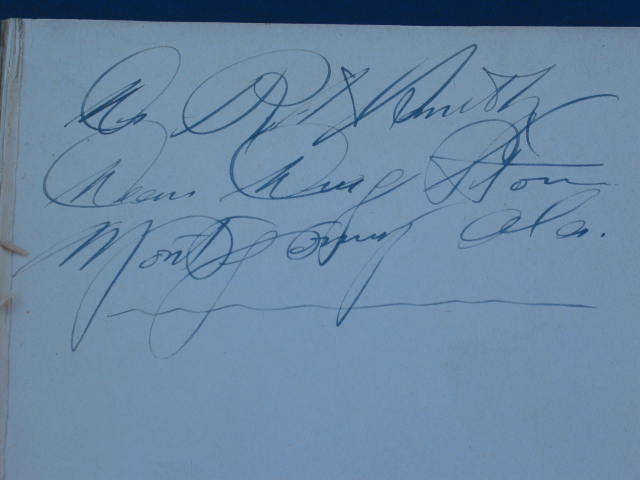 Dr Smith
Dean Drug Store
Montgomery Ala.